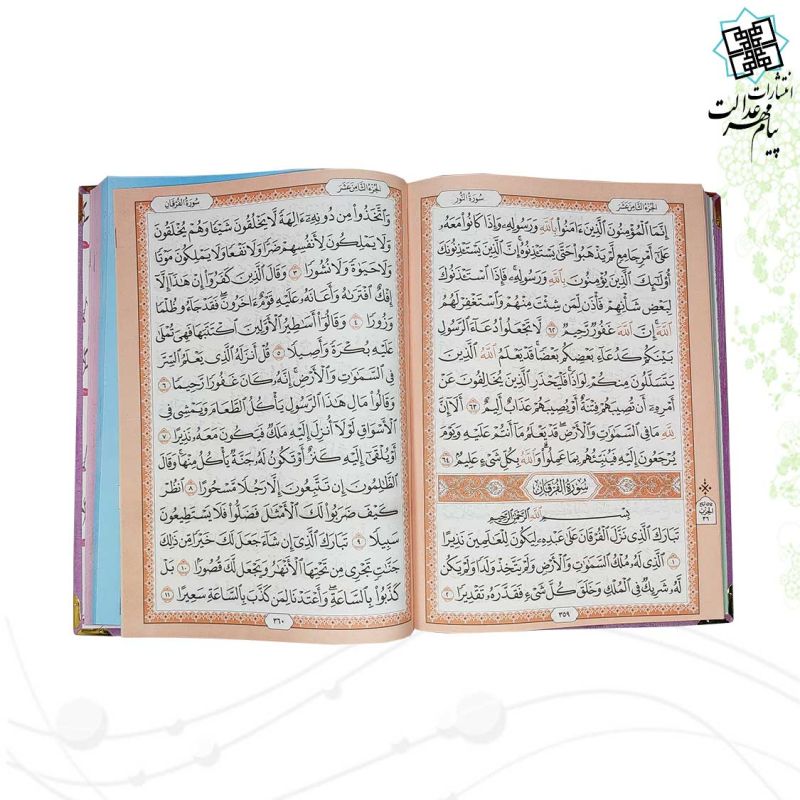 انتشارات
پیام مهر عدالت
الجزء الثامن عشر
سورة النور
إِنَّمَا ٱلْمُؤْمِنُونَ ٱلَّذِينَ ءَامَنُوا۟ بِٱللَّهِ وَرَسُولِهِۦ وَإِذَا كَانُوا۟ مَعَهُۥ
عَلَىٰٓ أَمْرٍ جَامِعٍ لَّمْ يَذْهَبُوا۟ حَتَّىٰ يَسْتَـْٔذِنُوهُ إِنَّ ٱلَّذِينَ يَسْتَـْٔذِنُونَكَ
أُو۟لَـٰٓئِكَ ٱلَّذِينَ يُؤْمِنُونَ بِٱللَّهِ وَرَسُولِهِۦ فَإِذَا ٱسْتَـْٔذَنُوكَ
لِبَعْضِ شَأْنِهِمْ فَأْذَن لِّمَن شِئْتَ مِنْهُمْ وَٱسْتَغْفِرْ لَهُمُ
ٱللَّهَ إِنَّ ٱللَّهَ غَفُورٌ رَّحِيمٌ ٦٢ لَّا تَجْعَلُوا۟ دُعَآءَ ٱلرَّسُولِ
بَيْنَكُمْ كَدُعَآءِ بَعْضِكُم بَعْضًا قَدْ يَعْلَمُ ٱللَّهُ ٱلَّذِينَ
يَتَسَلَّلُونَ مِنكُمْ لِوَاذًا فَلْيَحْذَرِ ٱلَّذِينَ يُخَالِفُونَ عَنْ
أَمْرِهِۦٓ أَن تُصِيبَهُمْ فِتْنَةٌ أَوْ يُصِيبَهُمْ عَذَابٌ أَلِيمٌ ٦٣ أَلَآ إِنَّ
لِلَّهِ مَا فِى ٱلسَّمَـٰوَٰتِ وَٱلْأَرْضِ قَدْ يَعْلَمُ مَآ أَنتُمْ عَلَيْهِ وَيَوْمَ
يُرْجَعُونَ إِلَيْهِ فَيُنَبِّئُهُم بِمَا عَمِلُوا۟ وَٱللَّهُ بِكُلِّ شَىْءٍ عَلِيمٌ ٦٤
سورة الفرقان
بِسْمِ ٱللَّهِ ٱلرَّحْمَـٰنِ ٱلرَّحِيمِ
تَبَارَكَ ٱلَّذِى نَزَّلَ ٱلْفُرْقَانَ عَلَىٰ عَبْدِهِۦ لِيَكُونَ لِلْعَـٰلَمِينَ نَذِيرًا
١ ٱلَّذِى لَهُۥ مُلْكُ ٱلسَّمَـٰوَٰتِ وَٱلْأَرْضِ وَلَمْ يَتَّخِذْ وَلَدًا وَلَمْ يَكُن
لَّهُۥ شَرِيكٌ فِى ٱلْمُلْكِ وَخَلَقَ كُلَّ شَىْءٍ فَقَدَّرَهُۥ تَقْدِيرًا ٢
٣٥٩
الحزب
٣٦
الجزء الثامن عشر
سورة الفرقان
وَٱتَّخَذُوا۟ مِن دُونِهِۦٓ ءَالِهَةً لَّا يَخْلُقُونَ شَيْـًٔا وَهُمْ يُخْلَقُونَ
وَلَا يَمْلِكُونَ لِأَنفُسِهِمْ ضَرًّا وَلَا نَفْعًا وَلَا يَمْلِكُونَ مَوْتًا
وَلَا حَيَوٰةً وَلَا نُشُورًا ٣ وَقَالَ ٱلَّذِينَ كَفَرُوٓا۟ إِنْ هَـٰذَآ إِلَّآ
إِفْكٌ ٱفْتَرَىٰهُ وَأَعَانَهُۥ عَلَيْهِ قَوْمٌ ءَاخَرُونَ فَقَدْ جَآءُو ظُلْمًا
وَزُورًا ٤ وَقَالُوٓا۟ أَسَـٰطِيرُ ٱلْأَوَّلِينَ ٱكْتَتَبَهَا فَهِىَ تُمْلَىٰ
عَلَيْهِ بُكْرَةً وَأَصِيلًا ٥ قُلْ أَنزَلَهُ ٱلَّذِى يَعْلَمُ ٱلسِّرَّ
فِى ٱلسَّمَـٰوَٰتِ وَٱلْأَرْضِ إِنَّهُۥ كَانَ غَفُورًا رَّحِيمًا ٦
وَقَالُوا۟ مَالِ هَـٰذَا ٱلرَّسُولِ يَأْكُلُ ٱلطَّعَامَ وَيَمْشِى فِى
ٱلْأَسْوَاقِ لَوْلَآ أُنزِلَ إِلَيْهِ مَلَكٌ فَيَكُونَ مَعَهُۥ نَذِيرًا ٧
أَوْ يُلْقَىٰٓ إِلَيْهِ كَنزٌ أَوْ تَكُونُ لَهُۥ جَنَّةٌ يَأْكُلُ مِنْهَا وَقَالَ
ٱلظَّـٰلِمُونَ إِن تَتَّبِعُونَ إِلَّا رَجُلًا مَّسْحُورًا ٨ ٱنظُرْ
كَيْفَ ضَرَبُوا۟ لَكَ ٱلْأَمْثَـٰلَ فَضَلُّوا۟ فَلَا يَسْتَطِيعُونَ
سَبِيلًا ٩ تَبَارَكَ ٱلَّذِىٓ إِن شَآءَ جَعَلَ لَكَ خَيْرًا مِّن ذَٰلِكَ
جَنَّـٰتٍ تَجْرِى مِن تَحْتِهَا ٱلْأَنْهَـٰرُ وَيَجْعَل لَّكَ قُصُورًا ١٠ بَلْ
كَذَّبُوا۟ بِٱلسَّاعَةِ وَأَعْتَدْنَا لِمَن كَذَّبَ بِٱلسَّاعَةِ سَعِيرًا ١١
٣٦٠